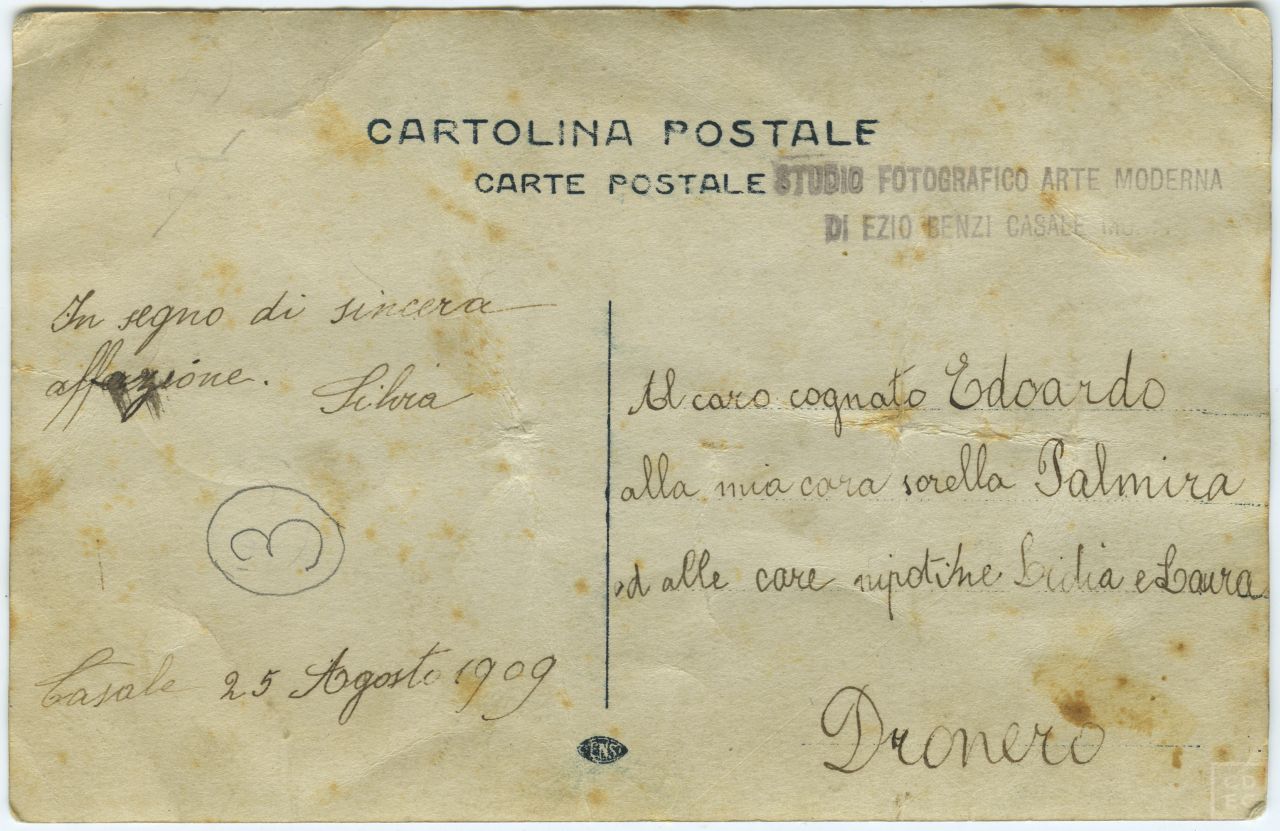 CARTOLINA POSTALE
CARTE POSTALE
STUDIO FOTOGRAFICO ARTE MODERNA
DI EZIO BENZI CASALE
In segno di sincera
affezione.
Silvia
3
Casale 25 Agosto 1909
Al caro cognato Edoardo
alla mia cara sorella Palmira
ed alle care nipotine Lidia e Laura
Dronero
CD
EC